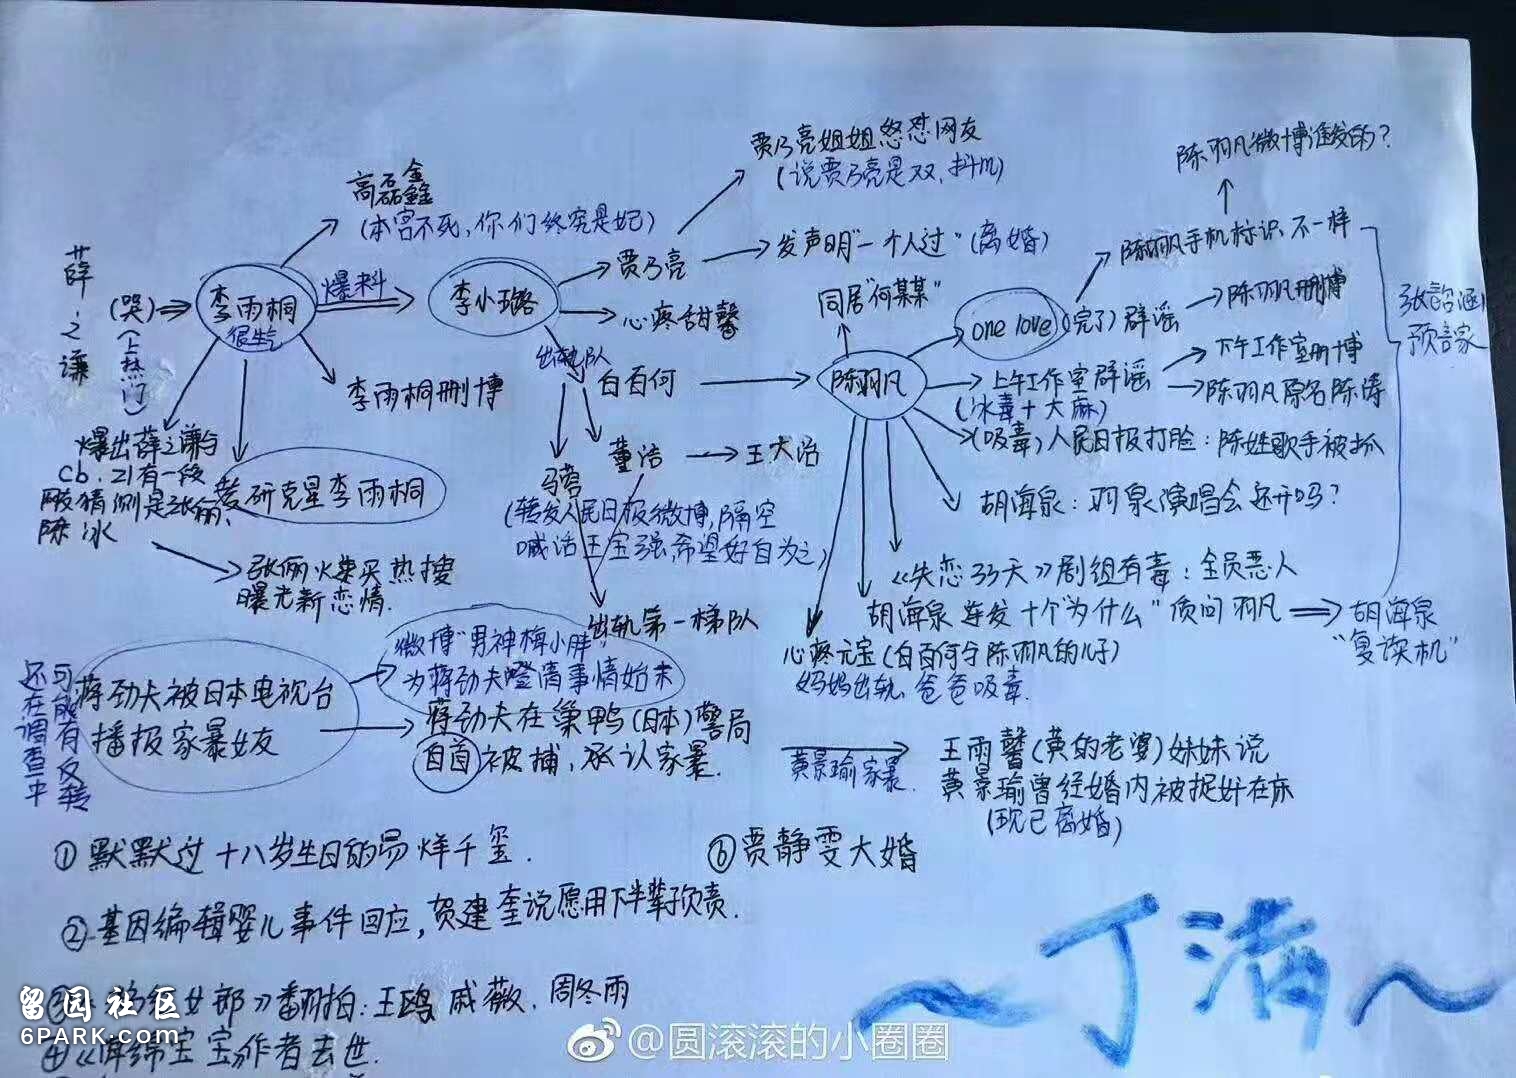 陈羽凡微博谁发的？
贾乃亮姐姐怒怼网友
(说贾乃亮是双,抖M)
高磊鑫
(本宫不死,你们终究是妃)
薛之谦
(哭)
(上热门)
李雨桐
很生气
爆料
李小璐
贾乃亮
发声明"一个人过"(离婚)
心疼甜馨
同居"何某某"
one love
(完了)群谣
陈羽凡手机标识不一样
陈羽凡删博
张韶涵
预言家
出轨队
白百何
陈羽凡
上午工作室群谣
(冰毒+大麻)
下午工作室删博
陈羽凡原名陈涛
李雨桐删博
(吸毒)人民日报打脸:陈姓歌手被抓
爆出薛之谦与
cb.21有一段
网友猜测是张俪、
陈冰
考研克星李雨桐
马蓉
董洁
王大治
(转发人民日报微博,隔空
喊话王宝强,希望好自为之)
胡海泉:羽泉演唱会还开吗?
张俪火柴买热搜
曝光新恋情.
《失恋33天》剧组有毒:全员恶人
胡海泉连发十个"为什么"质问羽凡
胡海泉
"复读机"
出轨第一梯队
心疼元宝(白百何与陈羽凡的儿子)
妈妈出轨,爸爸吸毒.
还在调查中
可能有反转
蒋劲夫被日本电视台
播报家暴女友
微博"男神梅小胖"
为蒋劲夫澄清事情始末
蒋劲夫在巢鸭(日本)警局
自首被捕,承认家暴.
黄景瑜家暴.
王雨馨(黄的老婆)妹妹说
黄景瑜曾经婚内被捉奸在床
(现已离婚)
①默默过十八岁生日的易烊千玺.
⑥贾静雯大婚
②基因编辑婴儿事件回应,贺建奎说愿用下半辈子负责.
③女郎》翻拍:王鸥 戚薇.周冬雨
④《海绵宝宝》作者去世.
~丁满~
留园社区
6PARK.COM
@圆滚滚的小圈圈